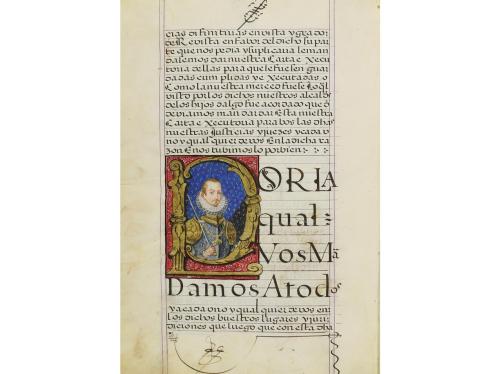 cias difinitivas en vista y gra do
de Revista en favor del dicho su par
te que nos pedia y suplicava le man
dasemos dar nuestra Carta e Xecu
toria dellas para que le fuesen guar
dadas cumplidas y e Xecutadas o
Como la nuestra merced fuese Lo ql
visto por los dichos nuestros alcaldes
de los hijos dalgo fue acordado que d
beviamos mandar dar Esta nuestra
Carta e Xecutoria para bos las dhas
nuestras Justicias y juezes y cada u
no y qual quier de vos En la dicha ra
zon E nos tubimos lo por bien
POR LA
qual
VOS Mā
Damos A todos
y a cada uno y qual quier de vos en
los dichos buestros lugares y juri
diciones que luego que con esta dha